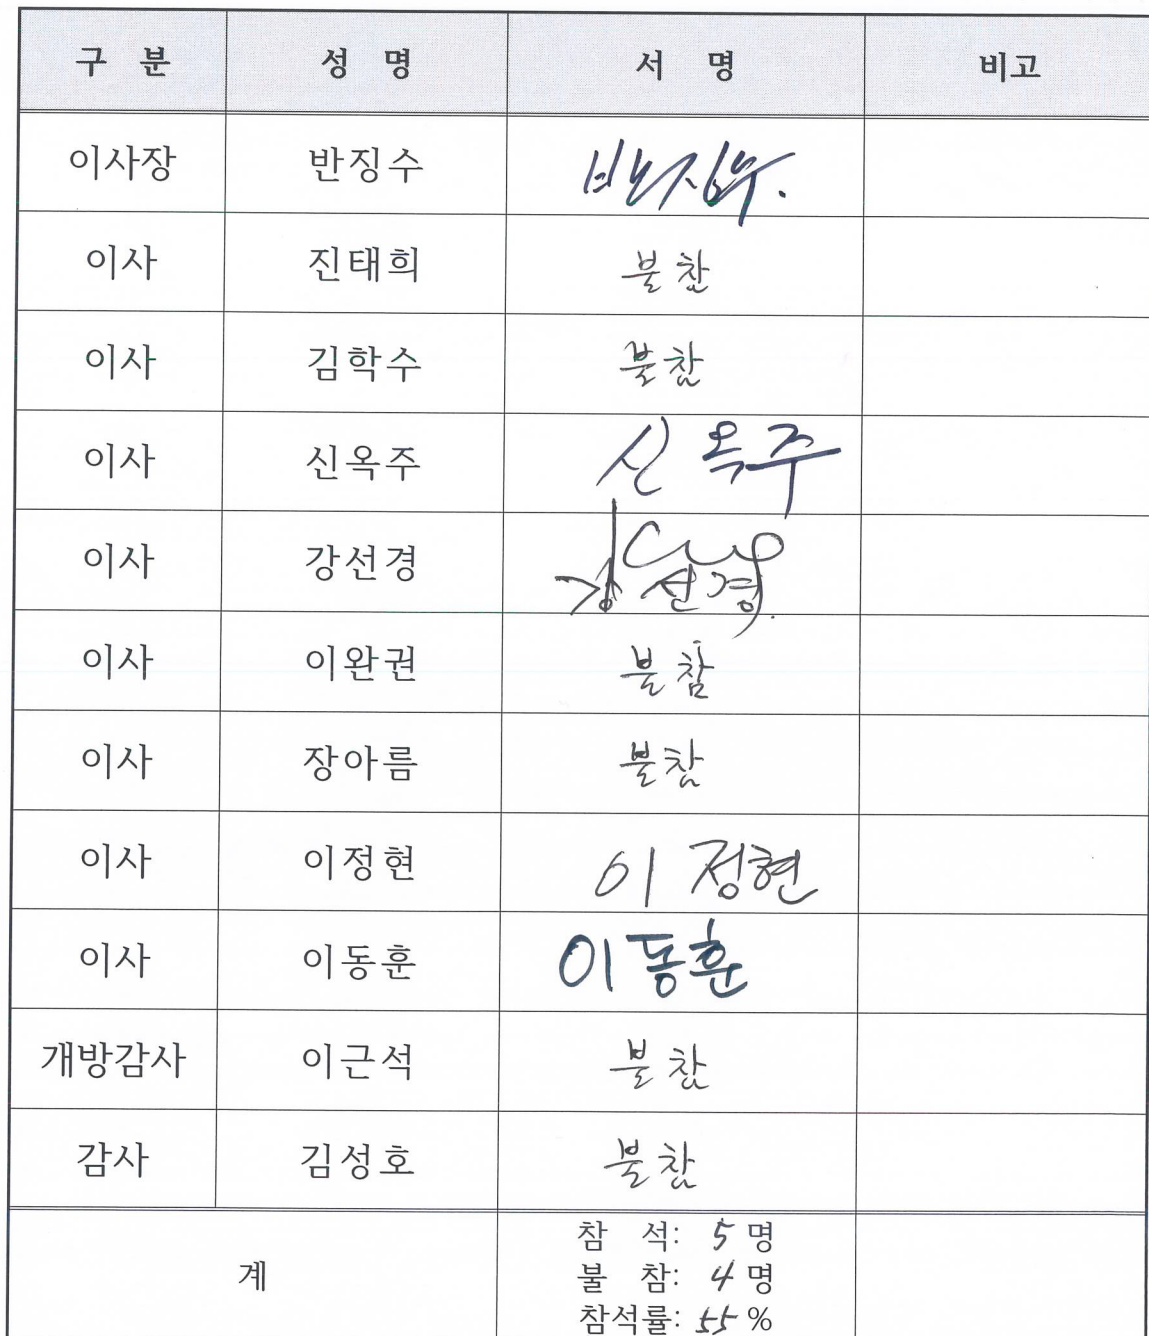 구 분 성 명 서 명 비고
이사장 반징수 반징수.
이사 진태희 불참
이사 김학수 불참
이사 신옥주 신옥주
이사 강선경 강선경
이사 이완권 불참
이사 장아름 불참
이사 이정현 이정현
이사 이동훈 이동훈
개방감사 이근석 불참
감사 김성호 불참
계 참 석: 5 명
불 참: 4 명
참석률: 55 %